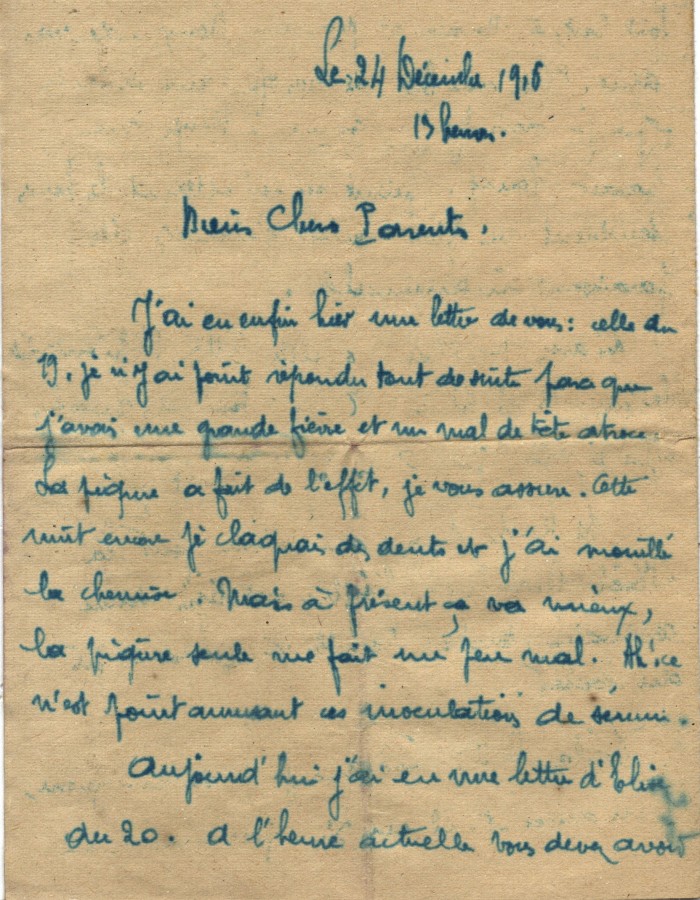 Le 24 Décembre 1916
13 heures.
Mes Chers Parents.
J'ai eu enfin hier une lettre de vous : celle du
19. je n'y ai point répondu tout de suite parce que
j'avais une grande fièvre et un mal de tête atroce.
La piqure a fait de l'effet, je vous assure. Cette
nuit encore je claquais des dents et j'ai mouillé
la chemise. Mais à présent ça va mieux,
la piqûre seule me fait un peu mal. Ah! ce
n'est point amusant ces inoculations de serum.
Aujourd'hui j'ai eu une lettre d'Elise
du 20. A l'heure actuelle vous devez avoir